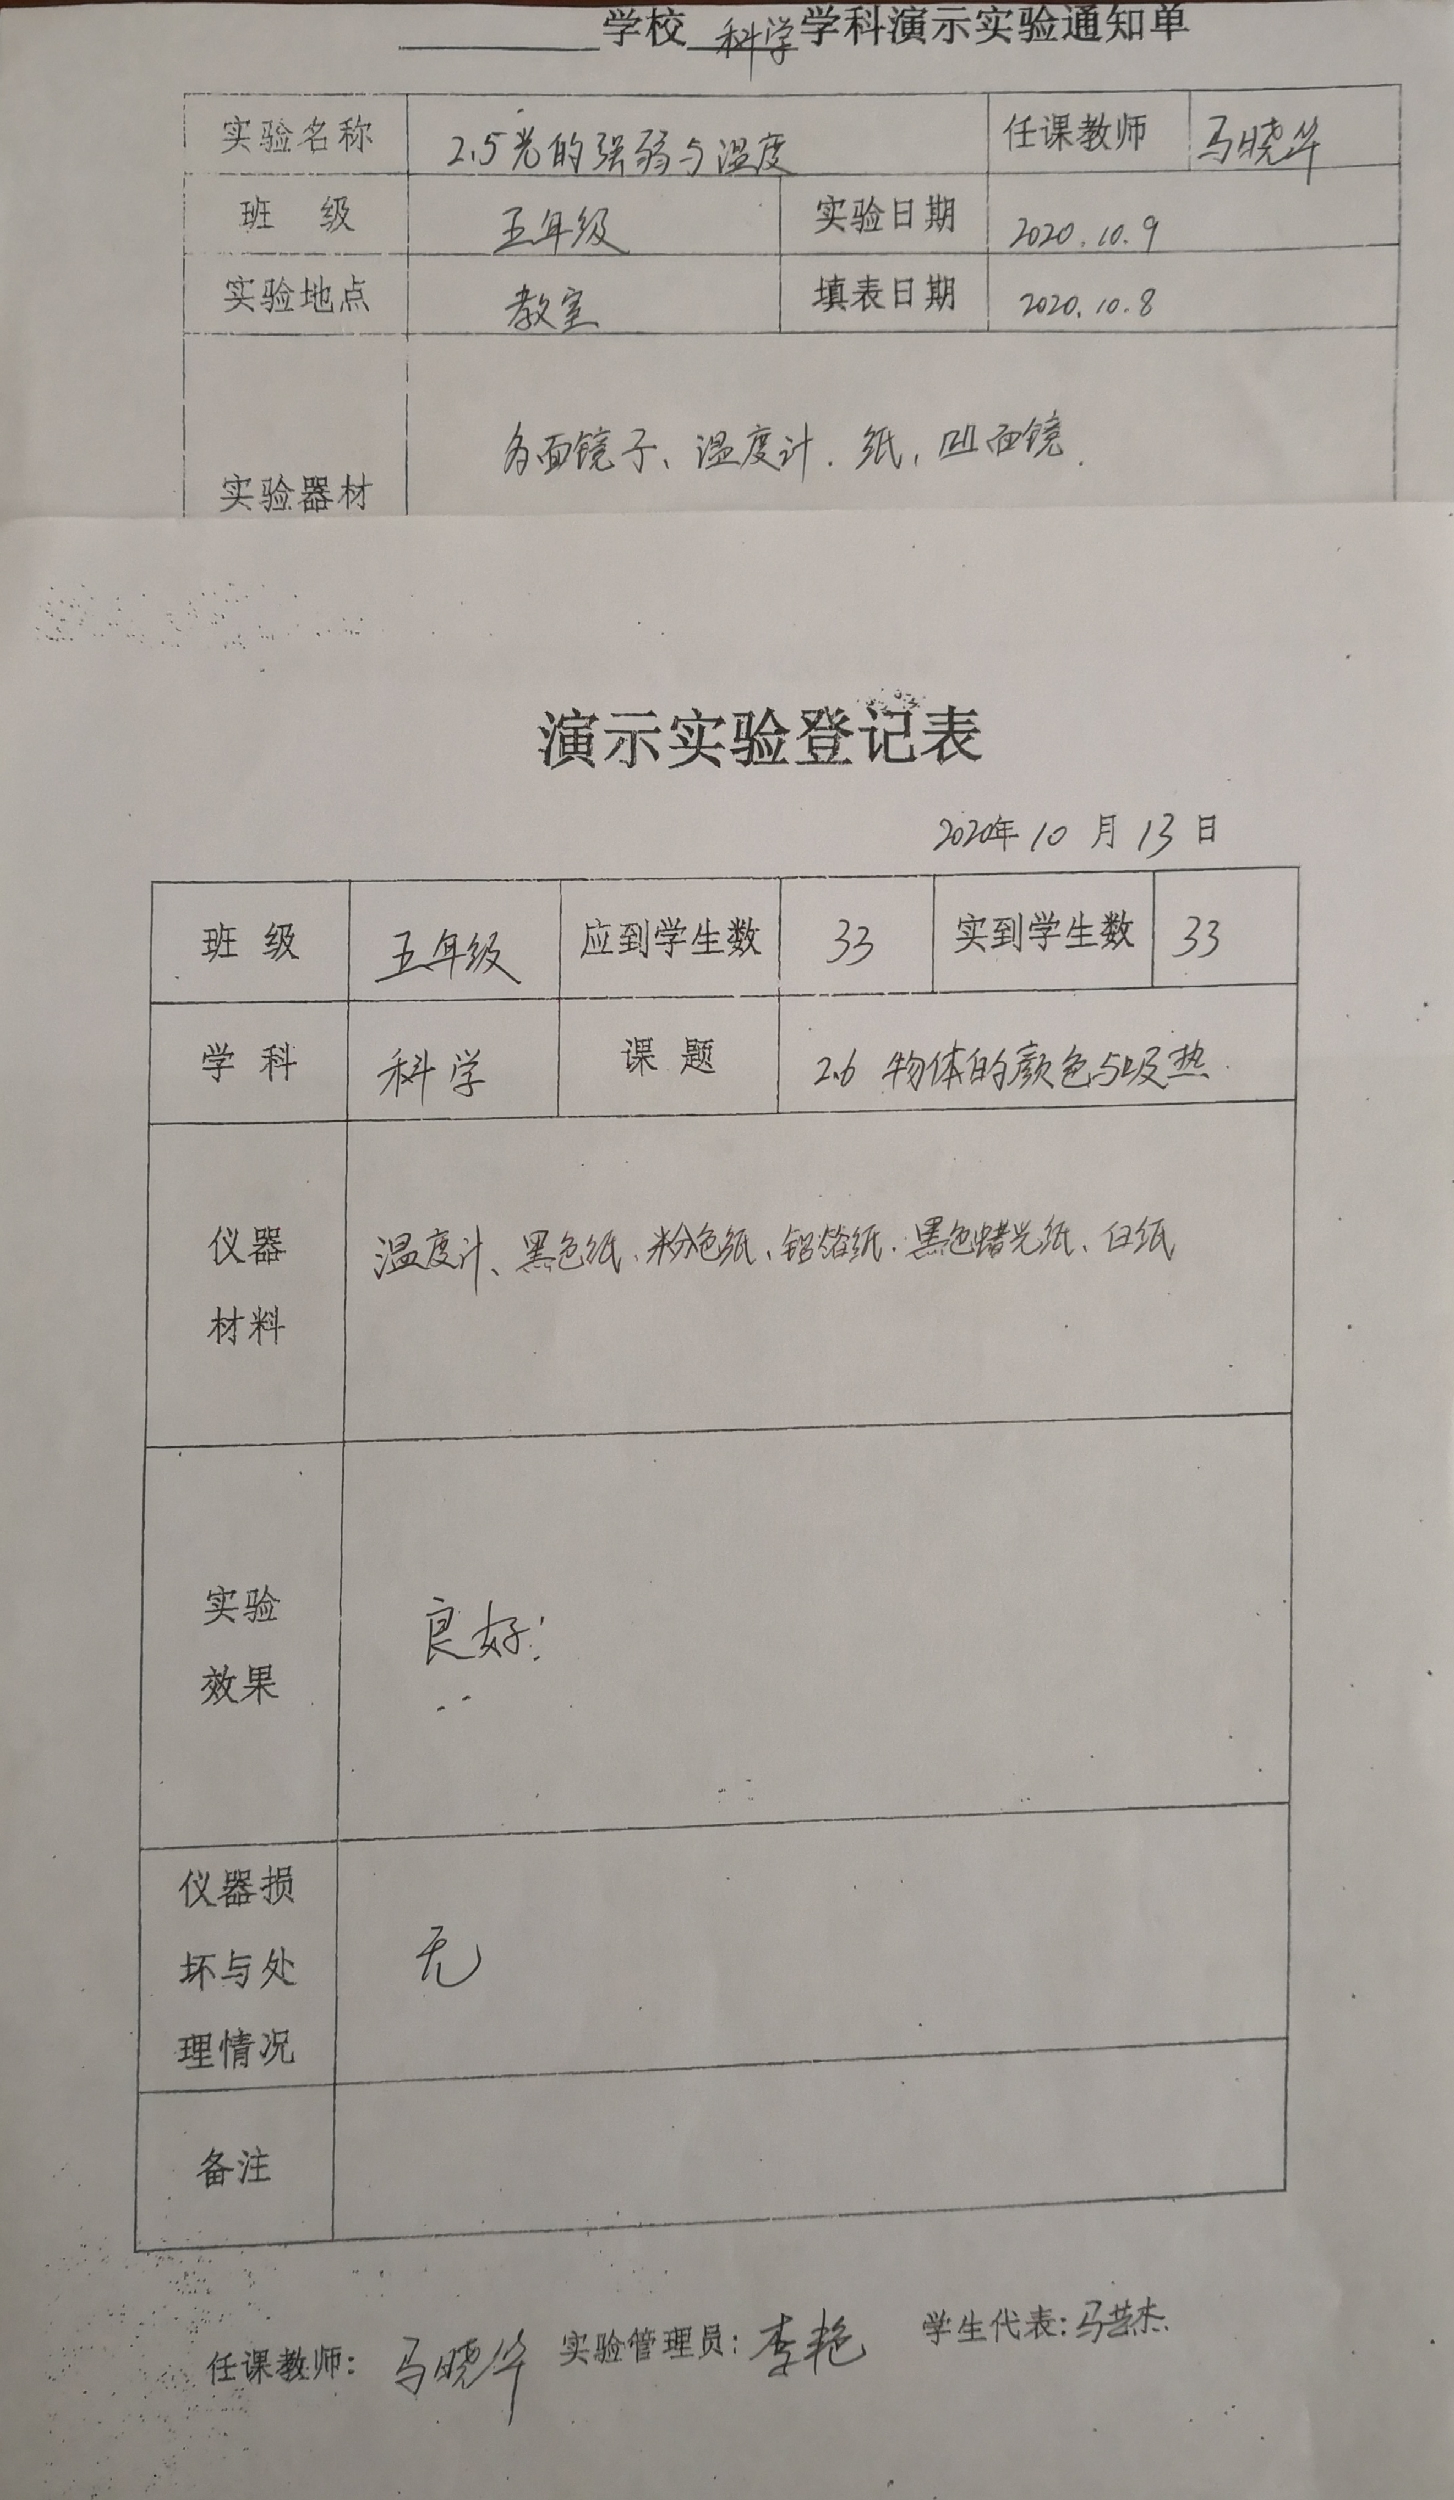 学校 科学 学科演示实验通知单
实验名称 2.5光的强弱与温度 任课教师 马晓华
班 级 五年级 实验日期 2020.10.9
实验地点 教室 填表日期 2020.10.8
实验器材 多面镜子、温度计、纸、凹面镜.
演示实验登记表
2020年 10 月 13 日
班 级 五年级 应到学生数 33 实到学生数 33
学 科 科学 课 题 2.6 物体的颜色与吸热
仪器
材料
温度计、黑色纸、粉色纸、铝箔纸、黑色蜡光纸、白纸
实验
效果
良好!
仪器损
坏与处
理情况
无
备注
任课教师: 马晓华 实验管理员: 李艳 学生代表: 马杰